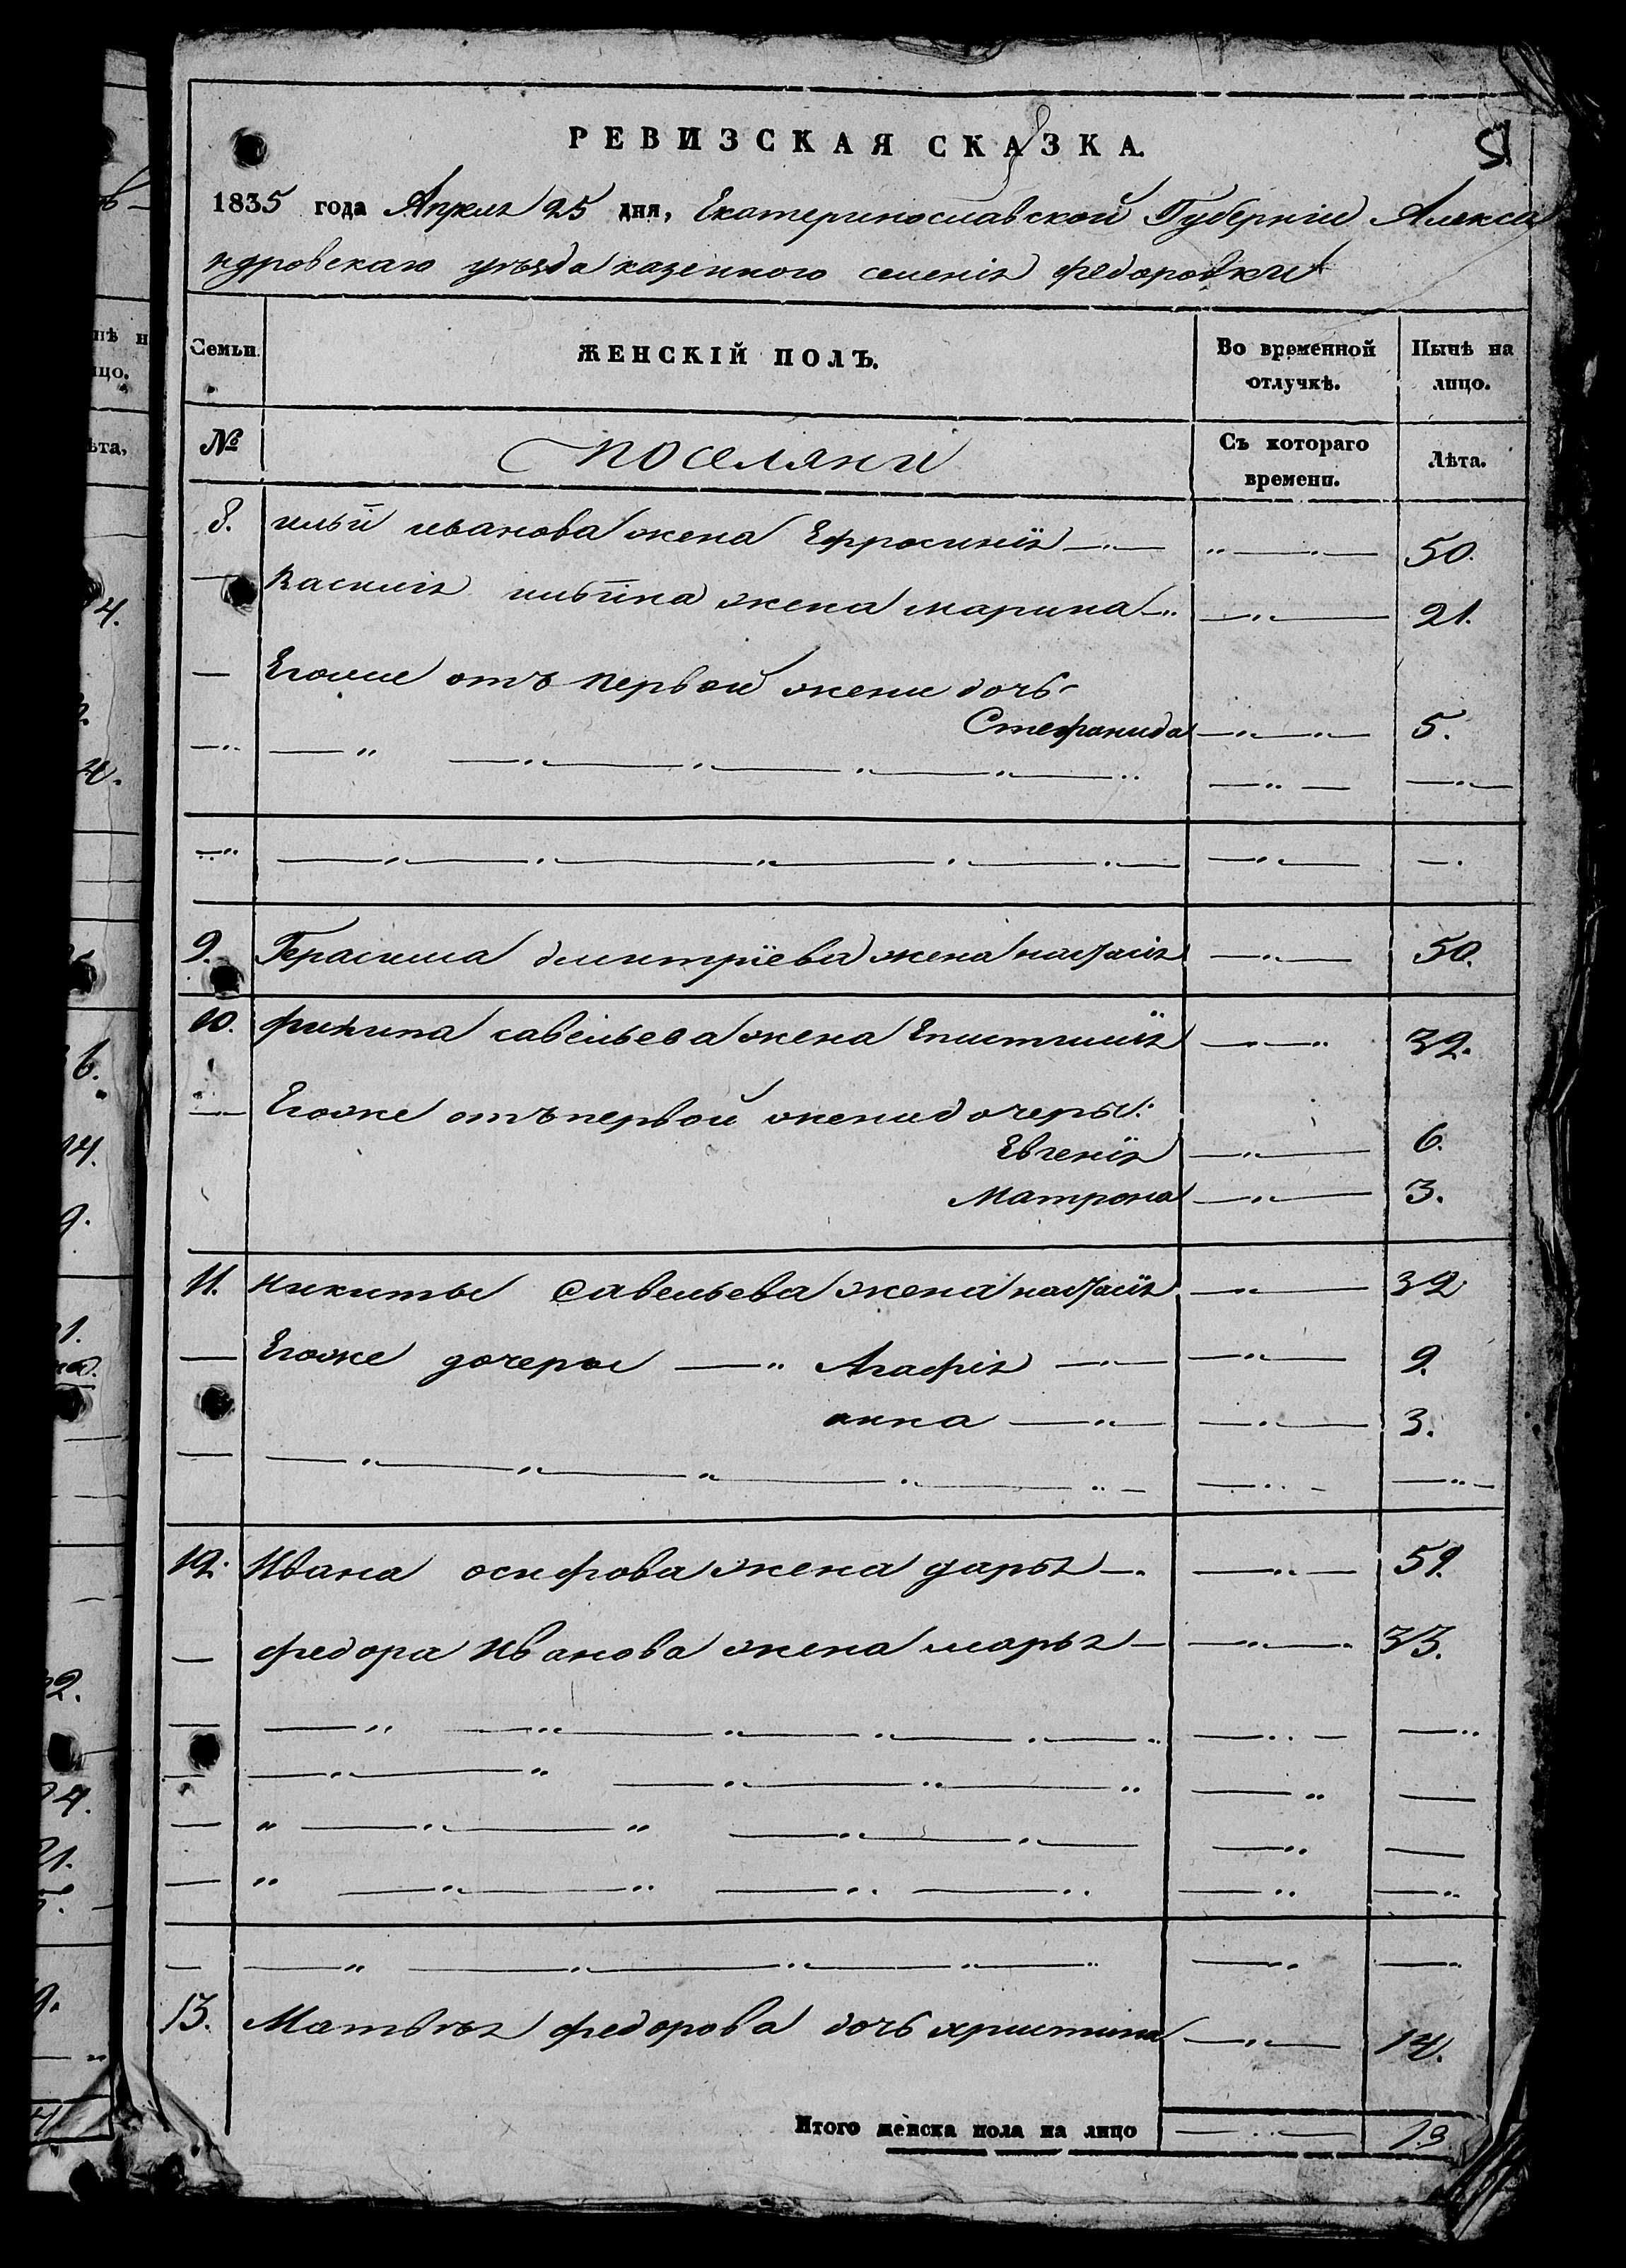 РЕВИЗСКАЯ СКАЗКА.
1835 года Апреля 25 дня, Екатеринославской Губерніи Алекса
ндровскаго уѣзда казенного селенія федоровки
Семьи. ЖЕНСКІЙ ПОЛЪ. Во временной отлучкѣ. Нынѣ на лицо.
№ поселяни Съ котораго времени. Лѣта.
8. ильи иванова жена Ефросинія 50.
Василія ильина жена марина 21.
Егоже отъ первой жени дочь
Стефанида 5.
9. Герасима дмитріева жена настасія 50.
10. филипа савельева жена Епистимія 32.
Егоже отъ первой жени дочеры:
Евгенія 6.
Матрона 3.
11. никиты савельева жена настасія 32
Егоже дочеры Агафія 9.
анна 3.
12. Ивана осифова жена дарья 59.
федора Иванова жена марья 33.
13. Матвѣя федорова дочь христина 14.
Итого женска пола на лицо 13.